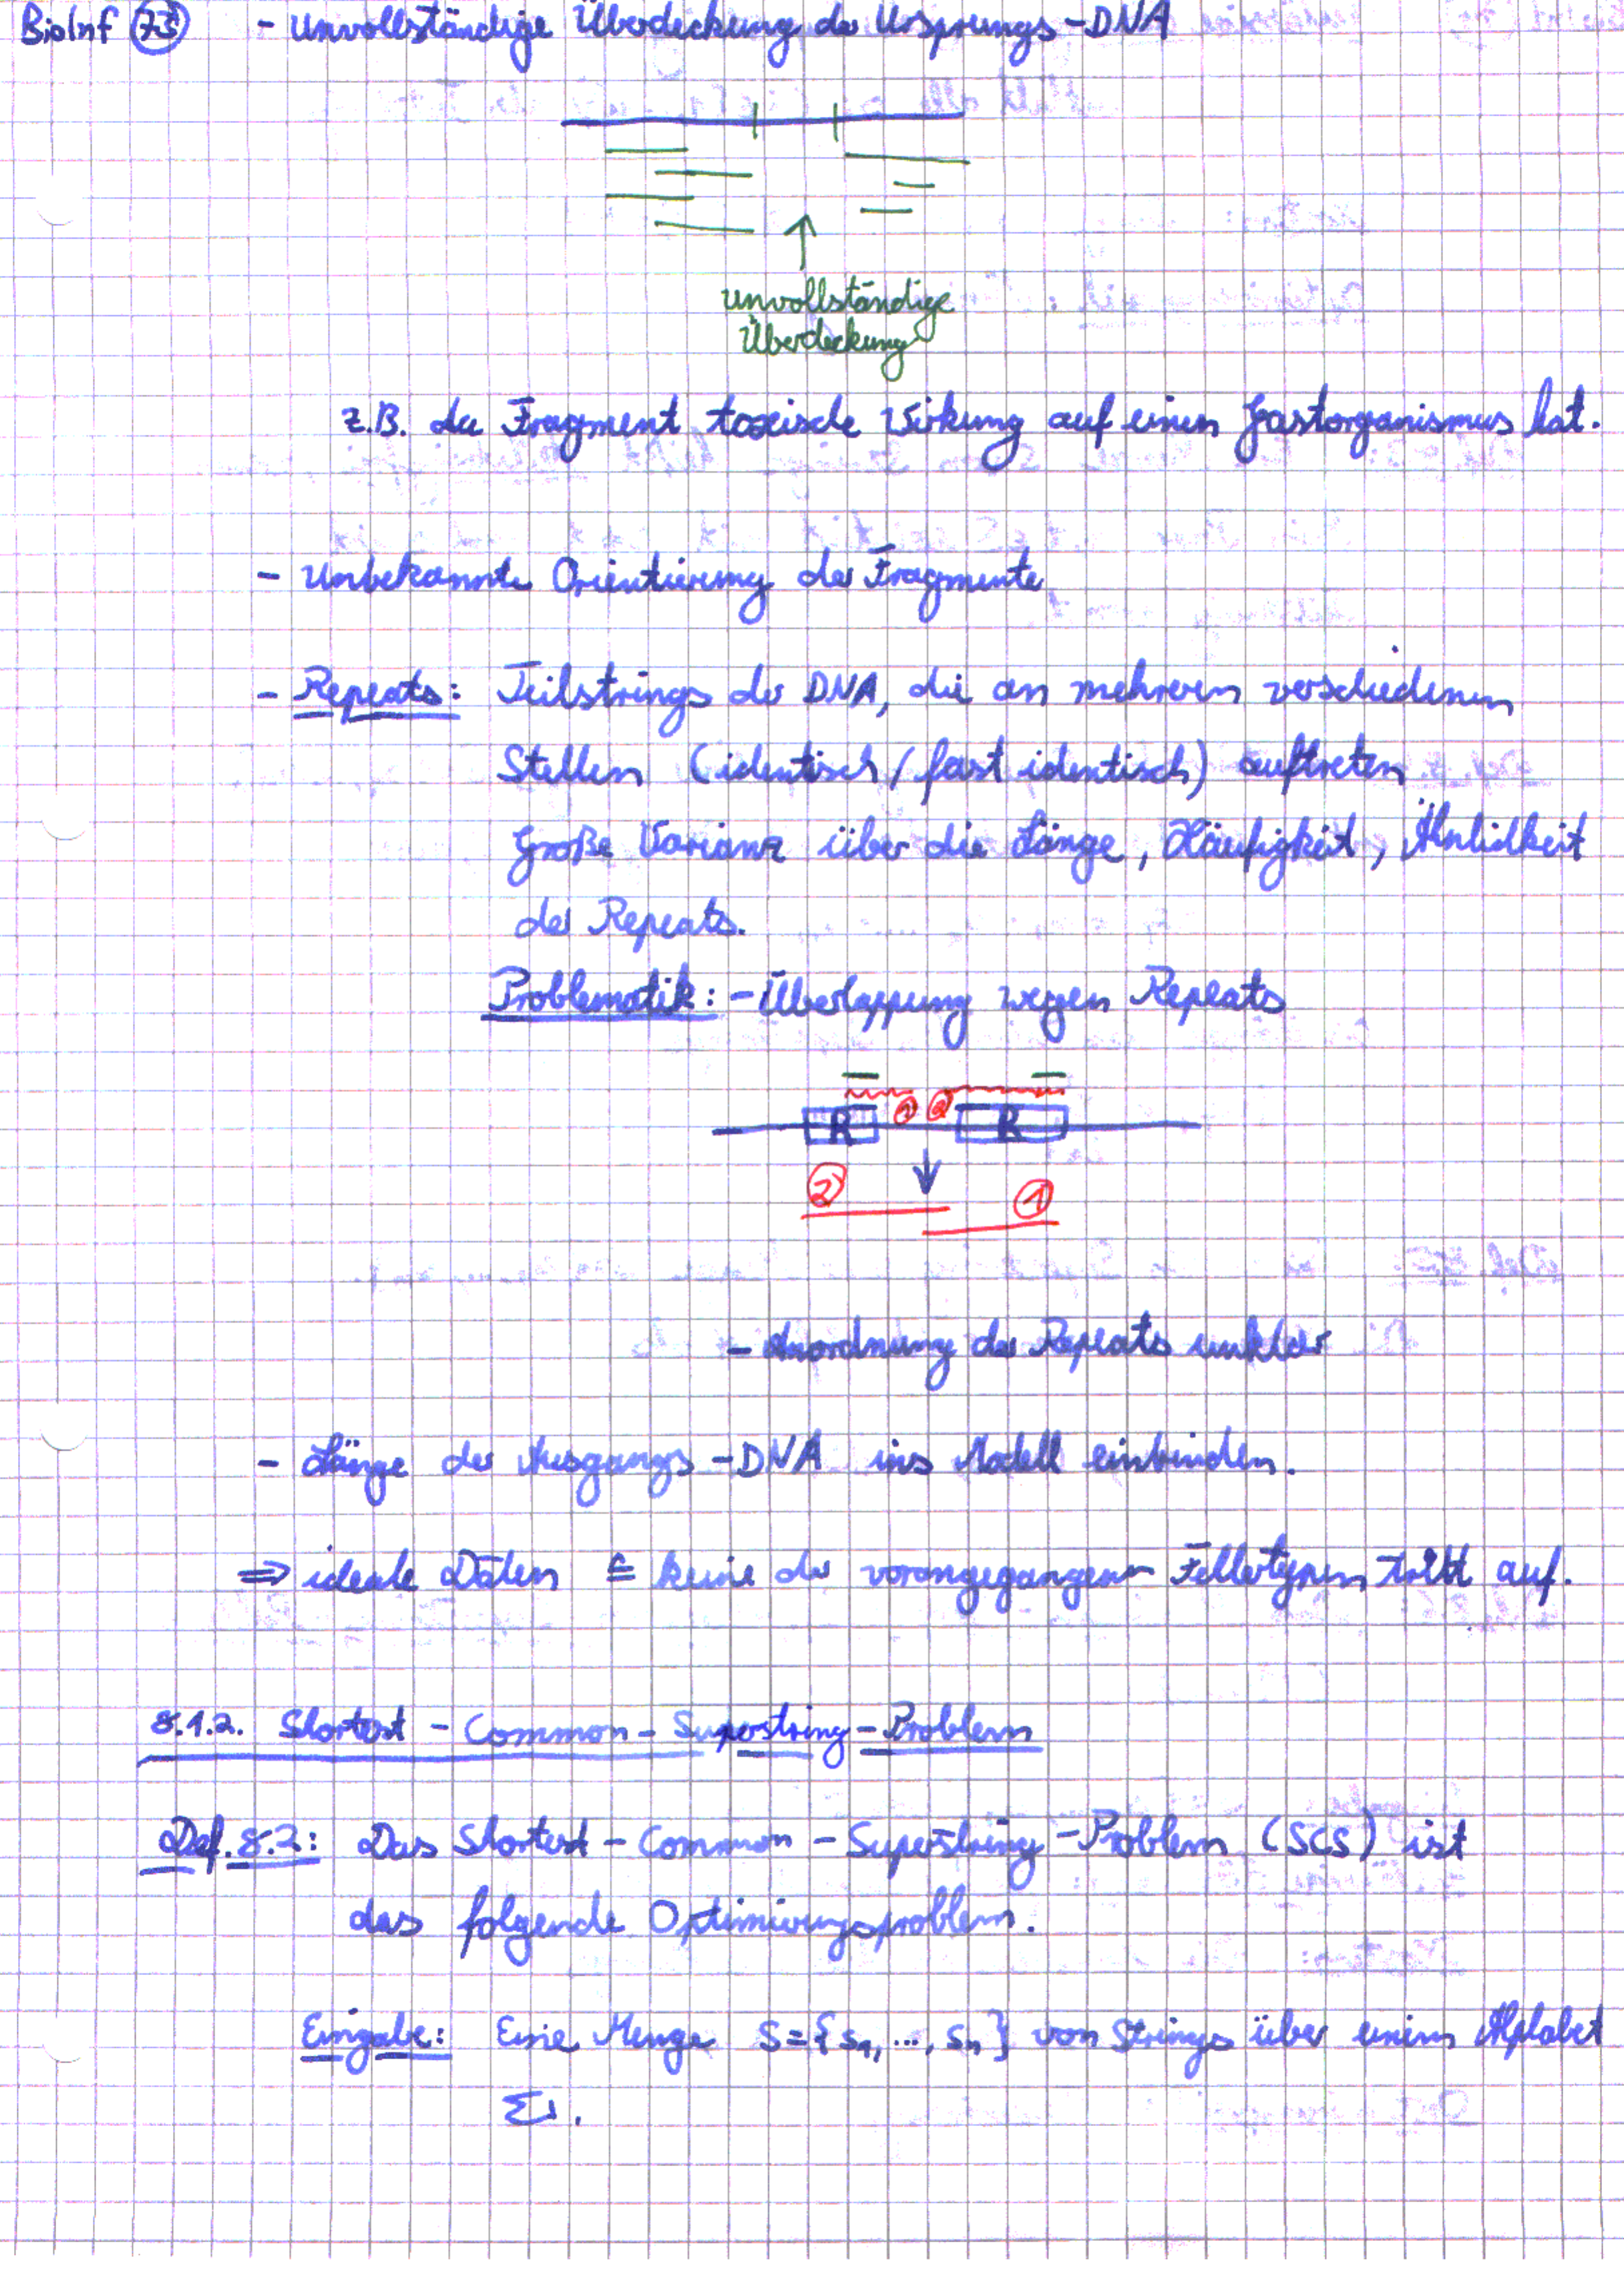 BioInf 75 - Unvollständige Überdeckung der Ursprungs-DNA
unvollständige
Überdeckung
z.B. da Fragment toxische Wirkung auf einen Gastorganismus hat.
- Unbekannte Orientierung der Fragmente
- Repeats: Teilstrings der DNA, die an mehreren verschiedenen
Stellen (identisch / fast identisch) auftreten
Große Varianz über die Länge, Häufigkeit, Ähnlichkeit
der Repeats.
Problematik: - Überlappung wegen Repeats
1 2
R R
2 1
- Anordnung der Repeats unklar
- Länge der Ausgangs-DNA ins Modell einbinden.
⇒ ideale Daten ≙ keine der vorangegangenen Fehlertypen tritt auf.
8.1.2. Shortest-Common-Superstring-Problem
Def. 8.2: Das Shortest-Common-Superstring-Problem (SCS) ist
das folgende Optimierungsproblem.
Eingabe: Eine Menge S={s₁, ..., sₙ} von Strings über einem Alphabet
Σ.